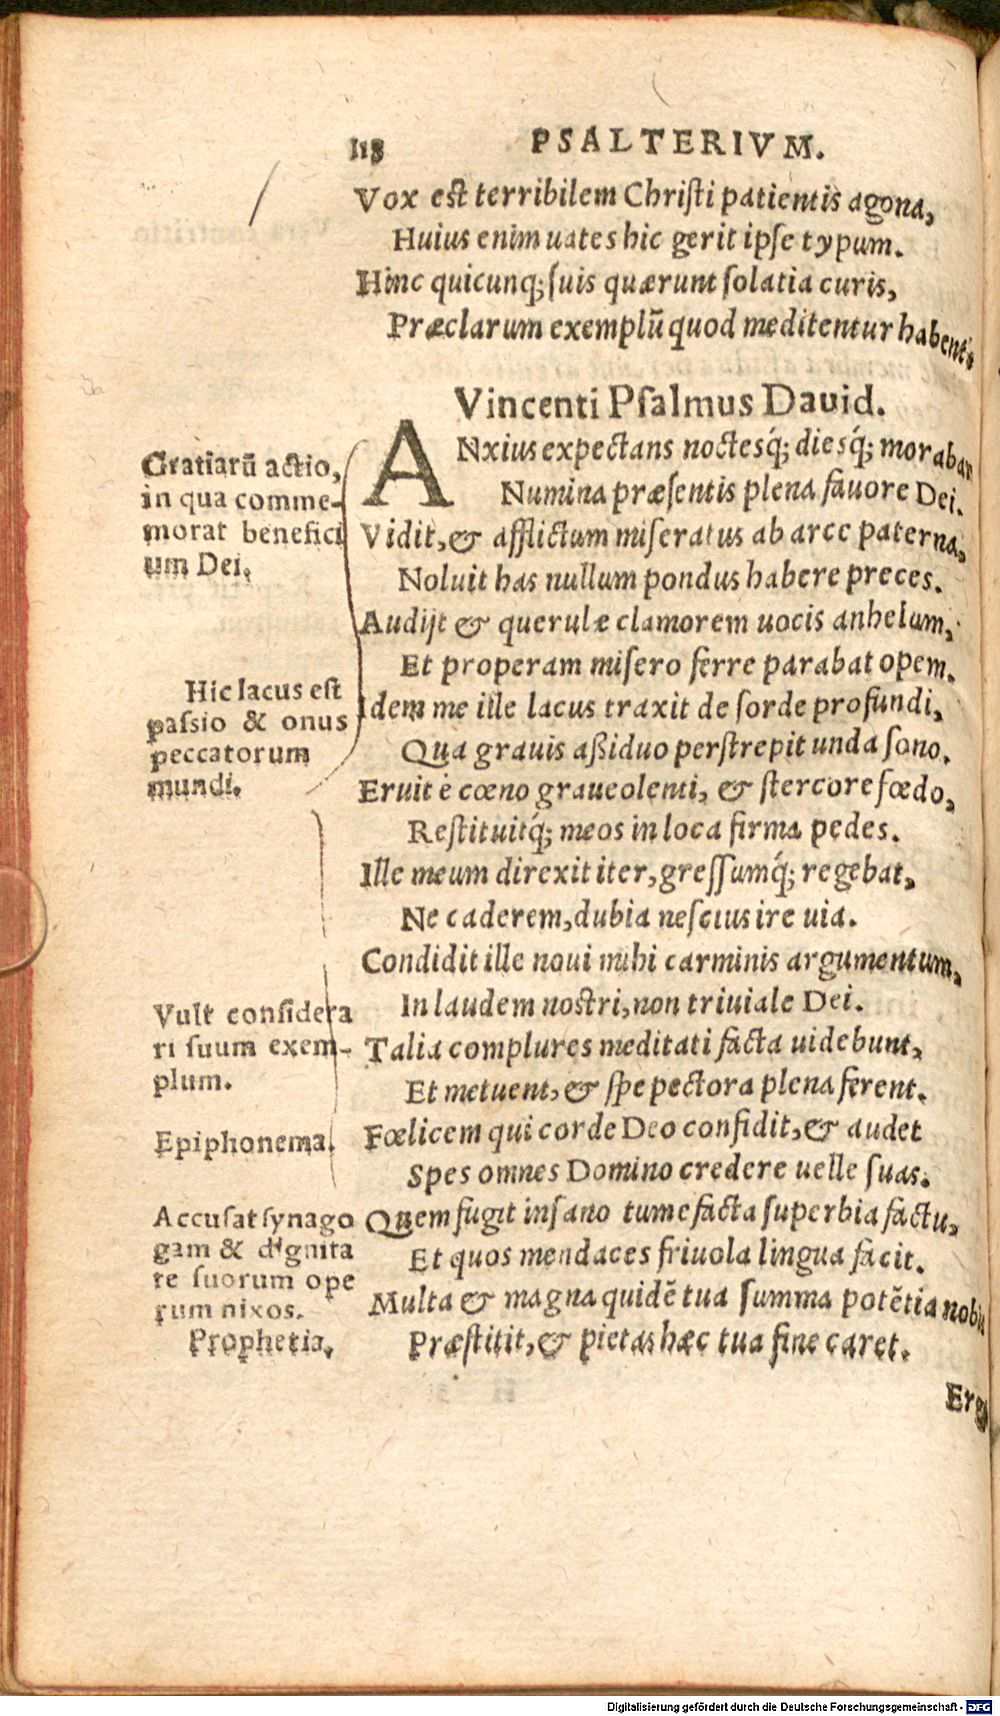 118 PSALTERIVM.
Vox est terribilem Christi patientis agona,
Huius enim uates hic gerit ipse typum.
Hinc quicunq; suis quærunt solatia curis,
Præclarum exemplū quod meditentur habent.
Vincenti Psalmus Dauid.
ANxius expectans noctesq́; diesq́; morabar
Numina præsentis plena fauore Dei.
Vidit, & afflictum miseratus ab arce paterna,
Noluit has nullum pondus habere preces.
Audijt & querulæ clamorem uocis anhelum,
Et properam misero ferre parabat opem.
Idem me ille lacus traxit de sorde profundi,
Qua grauis aßiduo perstrepit unda sono.
Eruit è cœno graueolenti, & stercore fœdo,
Restituitq́; meos in loca firma pedes.
Ille meum direxit iter, gressumq́; regebat,
Ne caderem, dubia nescius ire uia.
Condidit ille noui mihi carminis argumentum,
In laudem nostri, non triuiale Dei.
Talia complures meditati facta uidebunt,
Et metuent, & spe pectora plena ferent.
Fœlicem qui corde Deo confidit, & audet
Spes omnes Domino credere uelle suas.
Quem fugit insano tumefacta superbia factu,
Et quos mendaces friuola lingua facit.
Multa & magna quidē tua summa potētia nobis
Præstitit, & pietas hæc tua fine caret.
Ergo
Gratiarū actio,
in qua comme-
morat benefici
um Dei.
Hic lacus est
passio & onus
peccatorum
mundi.
Vult considera
ri suum exem-
plum.
Epiphonema.
Accusat synago
gam & dignita
te suorum ope
rum nixos.
Prophetia.
Digitalisierung gefördert durch die Deutsche Forschungsgemeinschaft - DFG